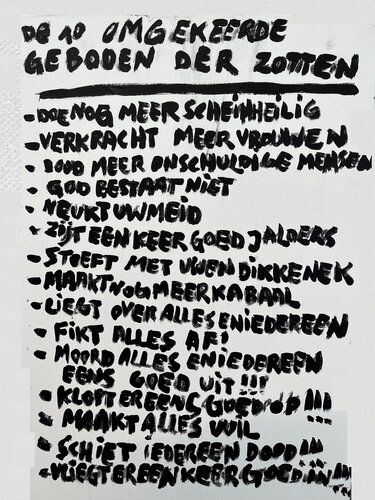 DE 10 OMGEKEERDE
GEBODEN DER ZOTTEN
- DOE NOG MEER SCHEINHEILIG
- VERKRACHT MEER VROUWEN
- DOOD MEER ONSCHULDIGE MENSEN
- GOD BESTAAT NIET
- NEUKT UW MEID
- ZIJT EEN KEER GOED JALOERS
- STOEFT MET UWEN DIKKE NEK
- MAAKT NOG MEER KABAAL
- LIEGT OVER ALLES EN IEDEREEN
- FIKT ALLES AF!
- MOORD ALLES EN IEDEREEN
EENS GOED UIT!!!
- KLOPT ER EENS GOED OP!!!
- MAAKT ALLES VUIL
- SCHIET IEDEREEN DOOD!!!
- VLIEGT ER EEN KEER GOED IN!!!